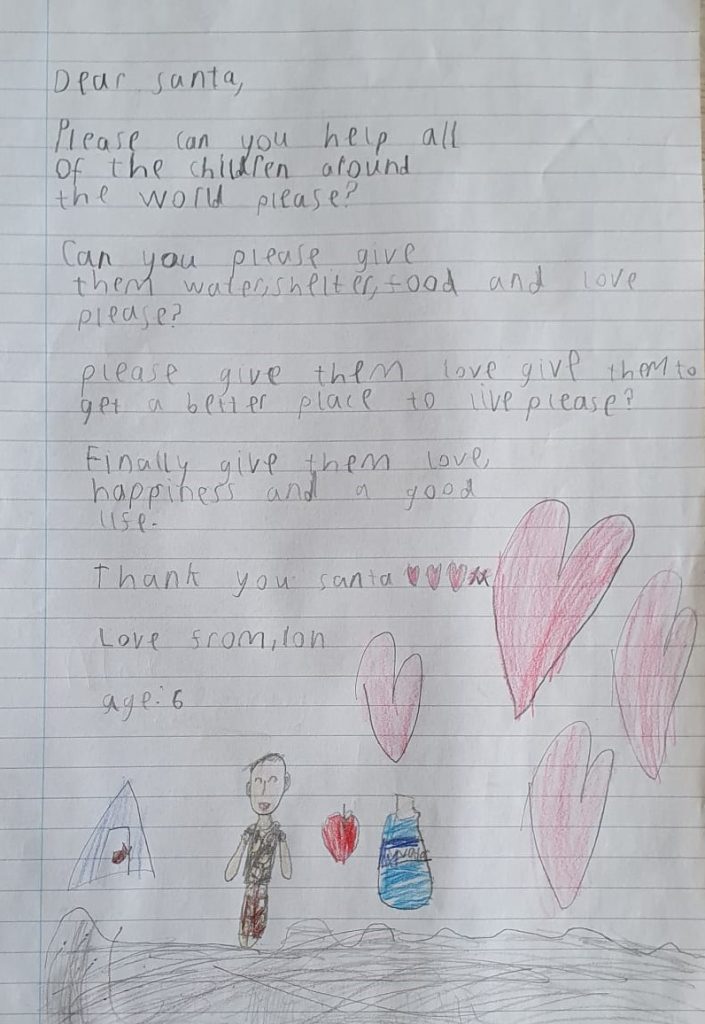 Dear santa,
Please can you help all
of the children around
the world please?
Can you please give
them water,shelter,food and love
please?
please give them love give them to
get a better place to live please?
Finally give them love,
happiness and a good
life.
Thank you santa
Love from,Ion
age:6